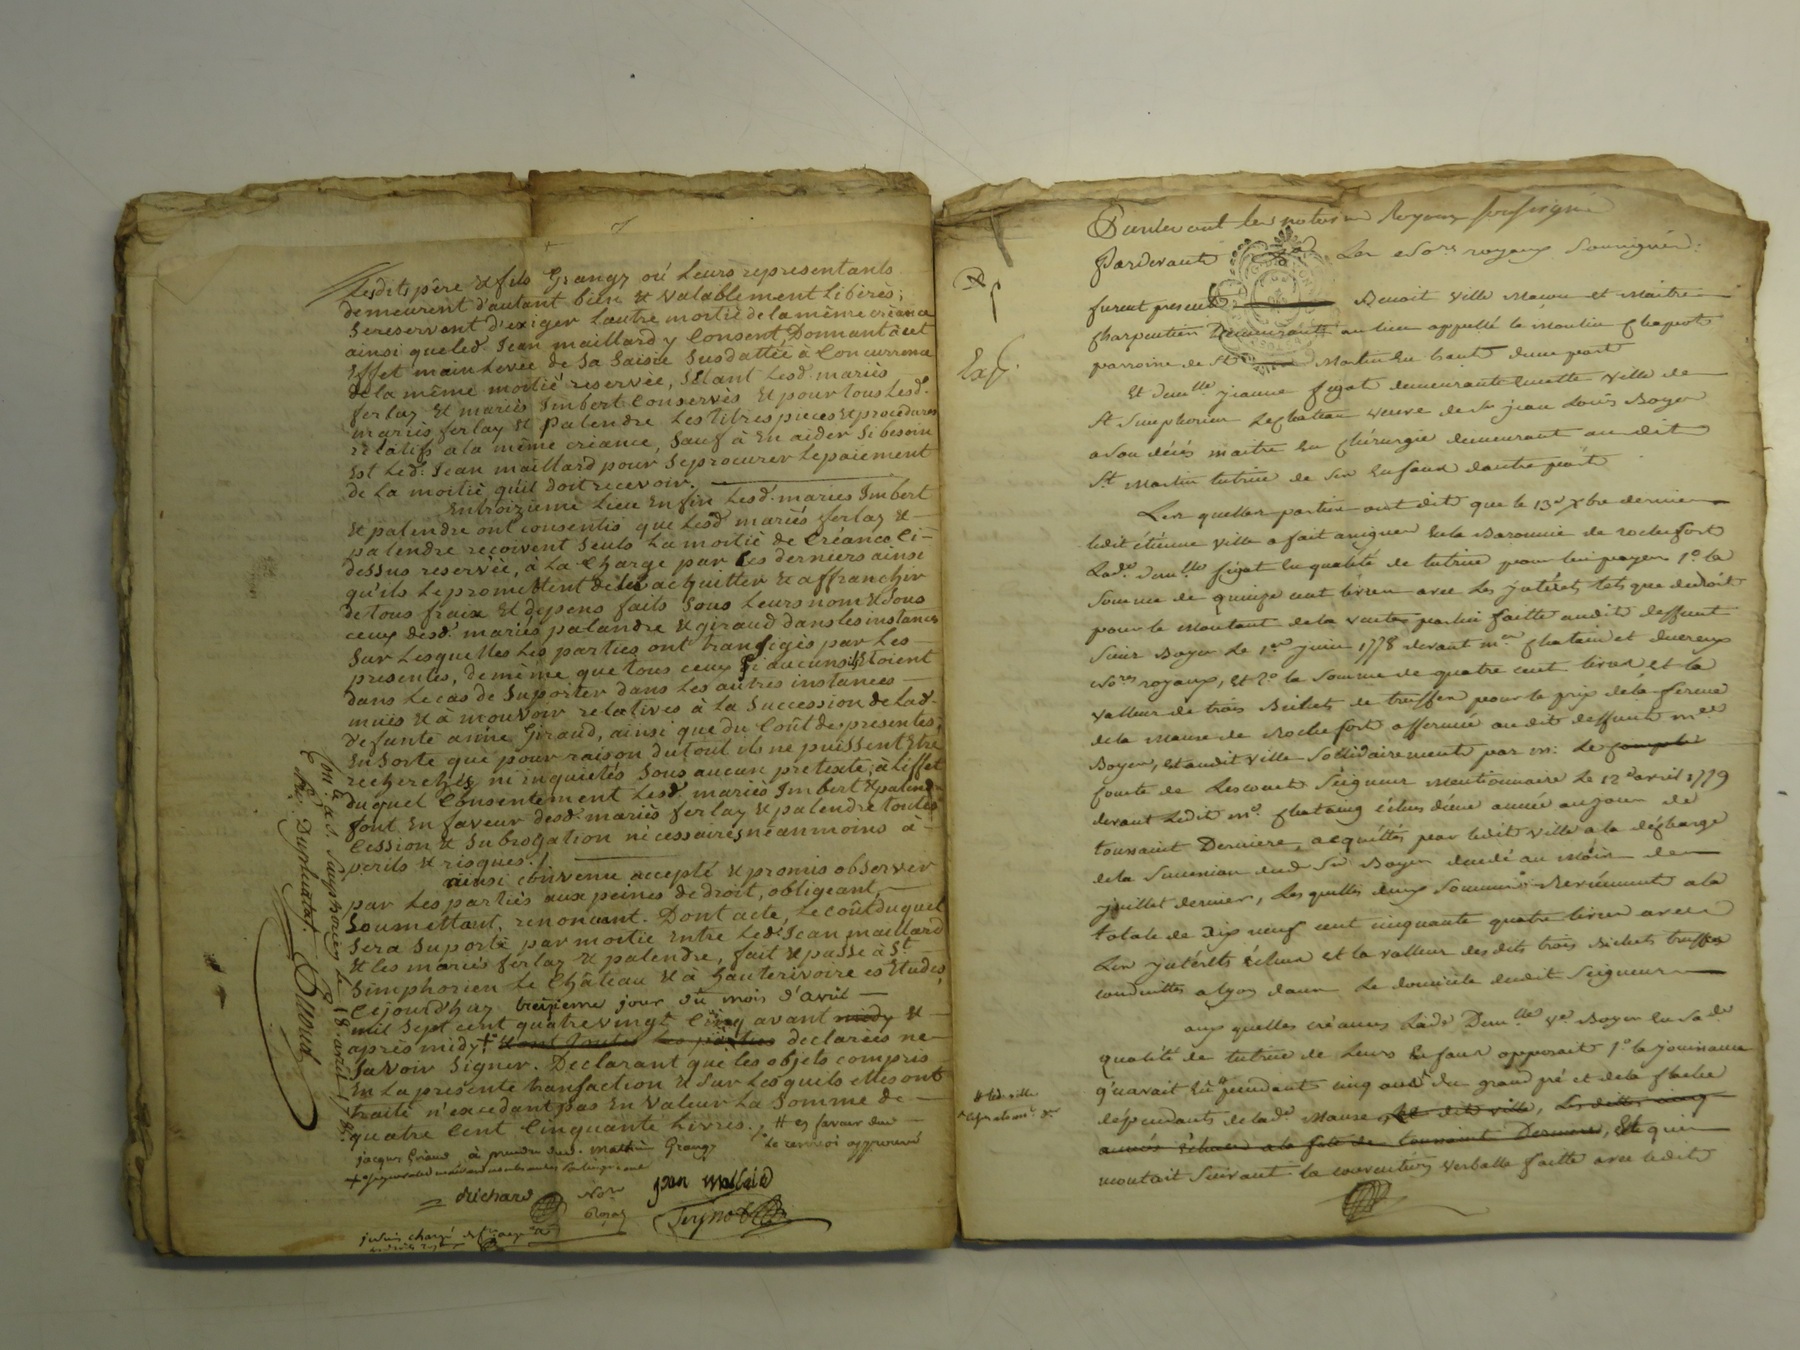 Lesdits père & fils Grangy où Leurs representants
demeurent d'autant bien & valablement Libérés;
Se reservant d'exiger L'autre moitié de la même créance
ainsi que led. Jean maillard y Consent, Donnant à cet
Effet main Levée de Sa Saisie Susdattée à Concurrence
de la même moitié reservée, Etant Lesd. mariés
ferlay & mariés Imbert Conservés Et pour tous Lesd.
mariés ferlay Et palendre Les titres pieces & procedures
relatifs a la même créance, Sauf à En aider Si besoin
Est Led. Jean maillard pour Se procurer Le paiement
de La moitié qu'il doit recevoir.
En troizieme Lieu Enfin Lesd. mariés Imbert
& palendre ont consentis que Lesd. mariés ferlay &
palendre reçoivent Seuls La moitié de Créance Ci-
dessus reservée, à La Charge par Ces derniers ainsi
qu'ils Le promettent de les acquitter & affranchir
de tous fraix & depens faits Sous Leurs nom & Sous
ceux desd. mariés palandre & giraud dans les instances
Sur Lesquelles Les parties ont transigés par Les
presentes, de même que tous ceux Si aucuns Etoient
dans Le cas de Suporter dans Les autres instances
mues & à mouvoir relatives à La Succession de Lad.
defunte anne Giraud, ainsi que du Coût des presentes,
En Sorte que pour raison du tout ils ne puissent Etre
recherchés ni inquietés Sous aucun pretexte, à L'effet
duquel Consentement Lesd. mariés Imbert & palendre
font En faveur desd. mariés ferlay & palendre toutes
Cession & Subrogation nécessaires néanmoins à
perils & risques.
ainsi convenu accepté & promis observer
par Les parties aux peines de droit, obligeant,
Soumettant, renonçant. Dont acte, Le coût duquel
Sera Suporté par moitié Entre Led. Jean maillard
& Les mariés ferlay & palendre, fait & passé à St.
Simphorien Le Château & à hauterivoire es Etudes,
Cejourd'huy treizieme jour du mois d'avril
mil Sept cent quatre vingt Cinq avant midy &
après midy declarées ne
Savoir Signer. Declarant que Les objets compris
En La presente transaction & Sur Lesquels Elles ont
traité n'excedant pas En Valeur La Somme de
quatre Cent Cinquante Livres. # en faveur du
jacques Giraud à prendre dud. Mathieu Grangy
Le renvoi approuvé
Richard Nore Royal
jean Mallaid
Con. à St. Simphorien Le 18. avril 178
Duplicata.
Pardevant les notaires Royaux soussignés
Pardevant Les No.res royaux Soussignés
furent presents Benoit Ville Maçon et Maitre
charpentier Demeurant au lieu appellé le moulin Chapot
parroisse de St. Martin En haut d'une part
Et dem.lle jeanne figat demeurante En cette Ville de
St. Simphorien Le Chateau veuve de Sr. jean Louis Boyer
a Son décés maitre En chirurgie demeurant au dit
St. Martin tutrice de Ses Enfans d'autre part
Les quelles parties ont dit que le 13e Xbre dernier
ledit étienne Ville a fait assigner En la Baronnie de rochefort
Lad.e dem.lle figat En qualité de tutrice pour lui payer 1.o la
Somme de quinze cent livres avec Les jntérets tels que de droit
pour le montant de la Vente par lui faitte audit deffunt
Sieur Boyer Le 1.er juin 1778 devant m.es Chatain et
No.res royaux, Et 2.o la Somme de quatre cent livres et la
Valleur de trois Bichets de truffes pour le prix de la ferme
de la Maison de Rochefort affermée audit deffunt m.e
Boyer, Et audit Ville Sollidairement par m. Le
Comte de Seigneur Mentionnaire Le 12.e avril 1779
devant Ledit m.e Chataing échus d'une année au jour de
toussaint Derniere, acquittés par ledit Ville a la décharge
de la Succession dud. Sr. Boyer décédé au Mois de
juillet dernier, Les quelles deux Sommes Reviennent a la
totale de Dix neuf cent cinquante quatre livres avec
Les jntérêts échus et la valleur des dits trois Bichets truffes
conduittes a lyon dans Le domicile dudit Seigneur
aux quelles créances Lad.e Dem.lle v.e Boyer En Sa d.e
qualité de tutrice de Leurs Enfans opposait 1.o la jouissance
q'avait Eü pendants cinq ans du grand pré et de la
dépendants de lad.e Maison, Led. dit Ville, Les dittes cinq
années échues a la fete de toussaint Derniere, Et qui
montait Suivant la convention verballe faitte avec ledit
# led. ville